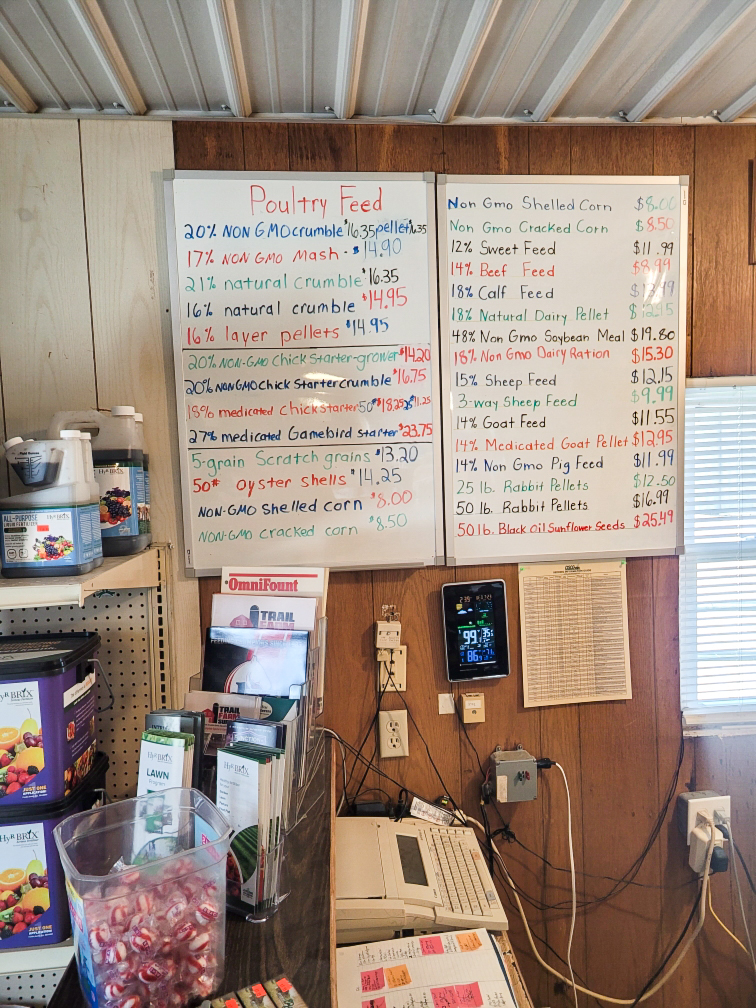 Poultry Feed
20% NON GMO crumble $16.35 pellet $16.35
17% NON GMO Mash - $14.90
21% natural crumble $16.35
16% natural crumble $14.95
16% layer pellets $14.95
20% NON-GMO Chick Starter-grower $14.20
20% NON GMO Chick Starter crumble $16.75
18% medicated Chick Starter 50# $18.25 25# $11.25
27% medicated Gamebird starter $23.75
5-grain Scratch grains $13.20
50# oyster shells $14.25
NON-GMO shelled corn $8.00
NON-GMO cracked corn $8.50
Non Gmo Shelled Corn $8.00
Non Gmo Cracked Corn $8.50
12% Sweet Feed $11.99
14% Beef Feed $8.99
18% Calf Feed
18% Natural Dairy Pellet
48% Non Gmo Soybean Meal $19.80
18% Non Gmo Dairy Ration $15.30
15% Sheep Feed $12.15
3-way Sheep Feed $9.99
14% Goat Feed $11.55
14% Medicated Goat Pellet $12.95
14% Non Gmo Pig Feed $11.99
25 lb. Rabbit Pellets $12.50
50 lb. Rabbit Pellets $16.99
50 lb. Black Oil Sunflower Seeds $25.49
OmniFount
TRAIL
FARM
TRAIL
FARM
HyR BRIX
LAWN
Program
HyR BRIX
ALL-PURPOSE
HyR BRIX
HyR BRIX
JUST ONE
APPLICATION
HyR BRIX
JUST ONE
99
35
86